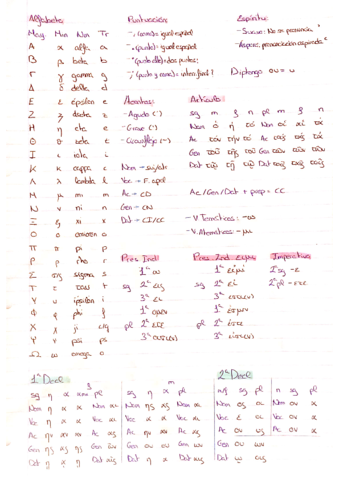 Alfabeto
May Min Nom Tr
Α α alfa a
Β β beta b
Γ γ gamma g
Δ δ delta d
Ε ε épsilon e
Ζ ζ dseta z
Η η eta e
Θ θ zeta t
Ι ι iota i
Κ κ cappa c
Λ λ lambda l
Μ μ mi m
Ν ν ni n
Ξ ξ xi x
Ο ο ómicron o
Π π pi p
Ρ ρ rho r
Σ σς sigma s
Τ τ tau t
Υ υ ípsilon i
Φ φ phi f
Χ χ ji
Ψ ψ psi ps
Ω ω omega o
Puntuación
- , (coma): igual español
- . (punto): igual español
- · (punto alto): dos puntos :
- ; (punto y coma): interr. final ?
Espíritu
- Suave: No se pronuncia '
- Áspero: pronunciación aspirada ʽ
Diptongo ου = u
Acentos:
- Agudo (´)
- Grave (`)
- Circunflejo (~)
Nom → sujeto
Voc → F. apel
Ac → CD
Gen → CN
Dat → CI/CC
Artículo:
sg m f n pl m f n
Nom ὁ ἡ τό Nom οἱ αἱ τά
Ac τόν τήν τό Ac τούς τάς τά
Gen τοῦ τῆς τοῦ Gen τῶν τῶν τῶν
Dat τῷ τῇ τῷ Dat τοῖς ταῖς τοῖς
Ac/Gen/Dat + prep = CC
- V. Temáticos: -ω
- V. Atemáticos: -μι
Pres Ind
1ª ω
sg 2ª εις
3ª ει
1ª ομεν
pl 2ª ετε
3ª ουσι(ν)
Pres Ind εἰμι
1ª εἰμί
sg 2ª εἶ
3ª ἐστι(ν)
1ª ἐσμέν
pl 2ª ἐστέ
3ª εἰσι(ν)
Imperativo
2ª sg -ε
2ª pl -ετε
1ª Decl
f
sg η α pl
Nom η α α Nom αι
Voc η α α Voc αι
Ac ην αν αν Ac ας
Gen ης ας ης Gen ων
Dat ῃ ᾳ ῃ Dat αις
m
sg η α pl
Nom ης ας Nom αι
Voc α α Voc αι
Ac ην αν Ac ας
Gen ου ου Gen ων
Dat ῃ ᾳ Dat αις
2ª Decl
m/f sg pl n sg pl
Nom ος οι Nom ον α
Voc ε οι Voc ον α
Ac ον ους Ac ον α
Gen ου ων
Dat ῳ οις